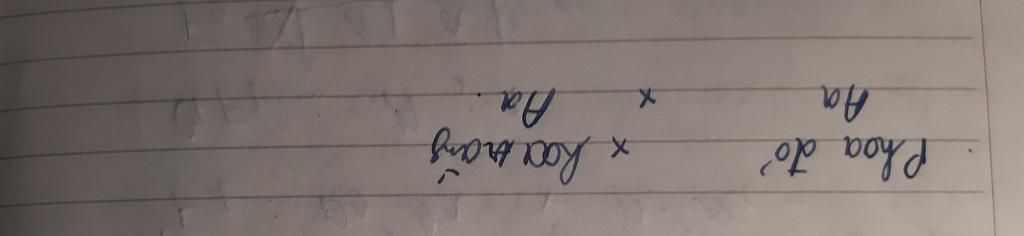 P hoa đỏ x hoa trắng
Aa x Aa